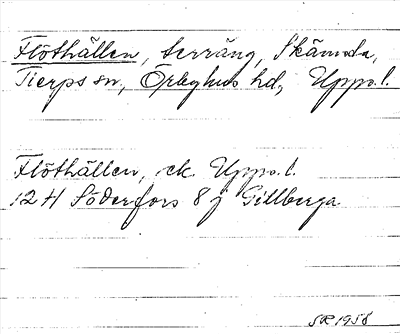 Flöthällen, terräng, Skämsta,
Tierps sn, Örbyhus hd, Uppo.l.
Flöthällen, ek. Uppo.l.
12 H Söderfors 8 j Gillberga
SR 1958